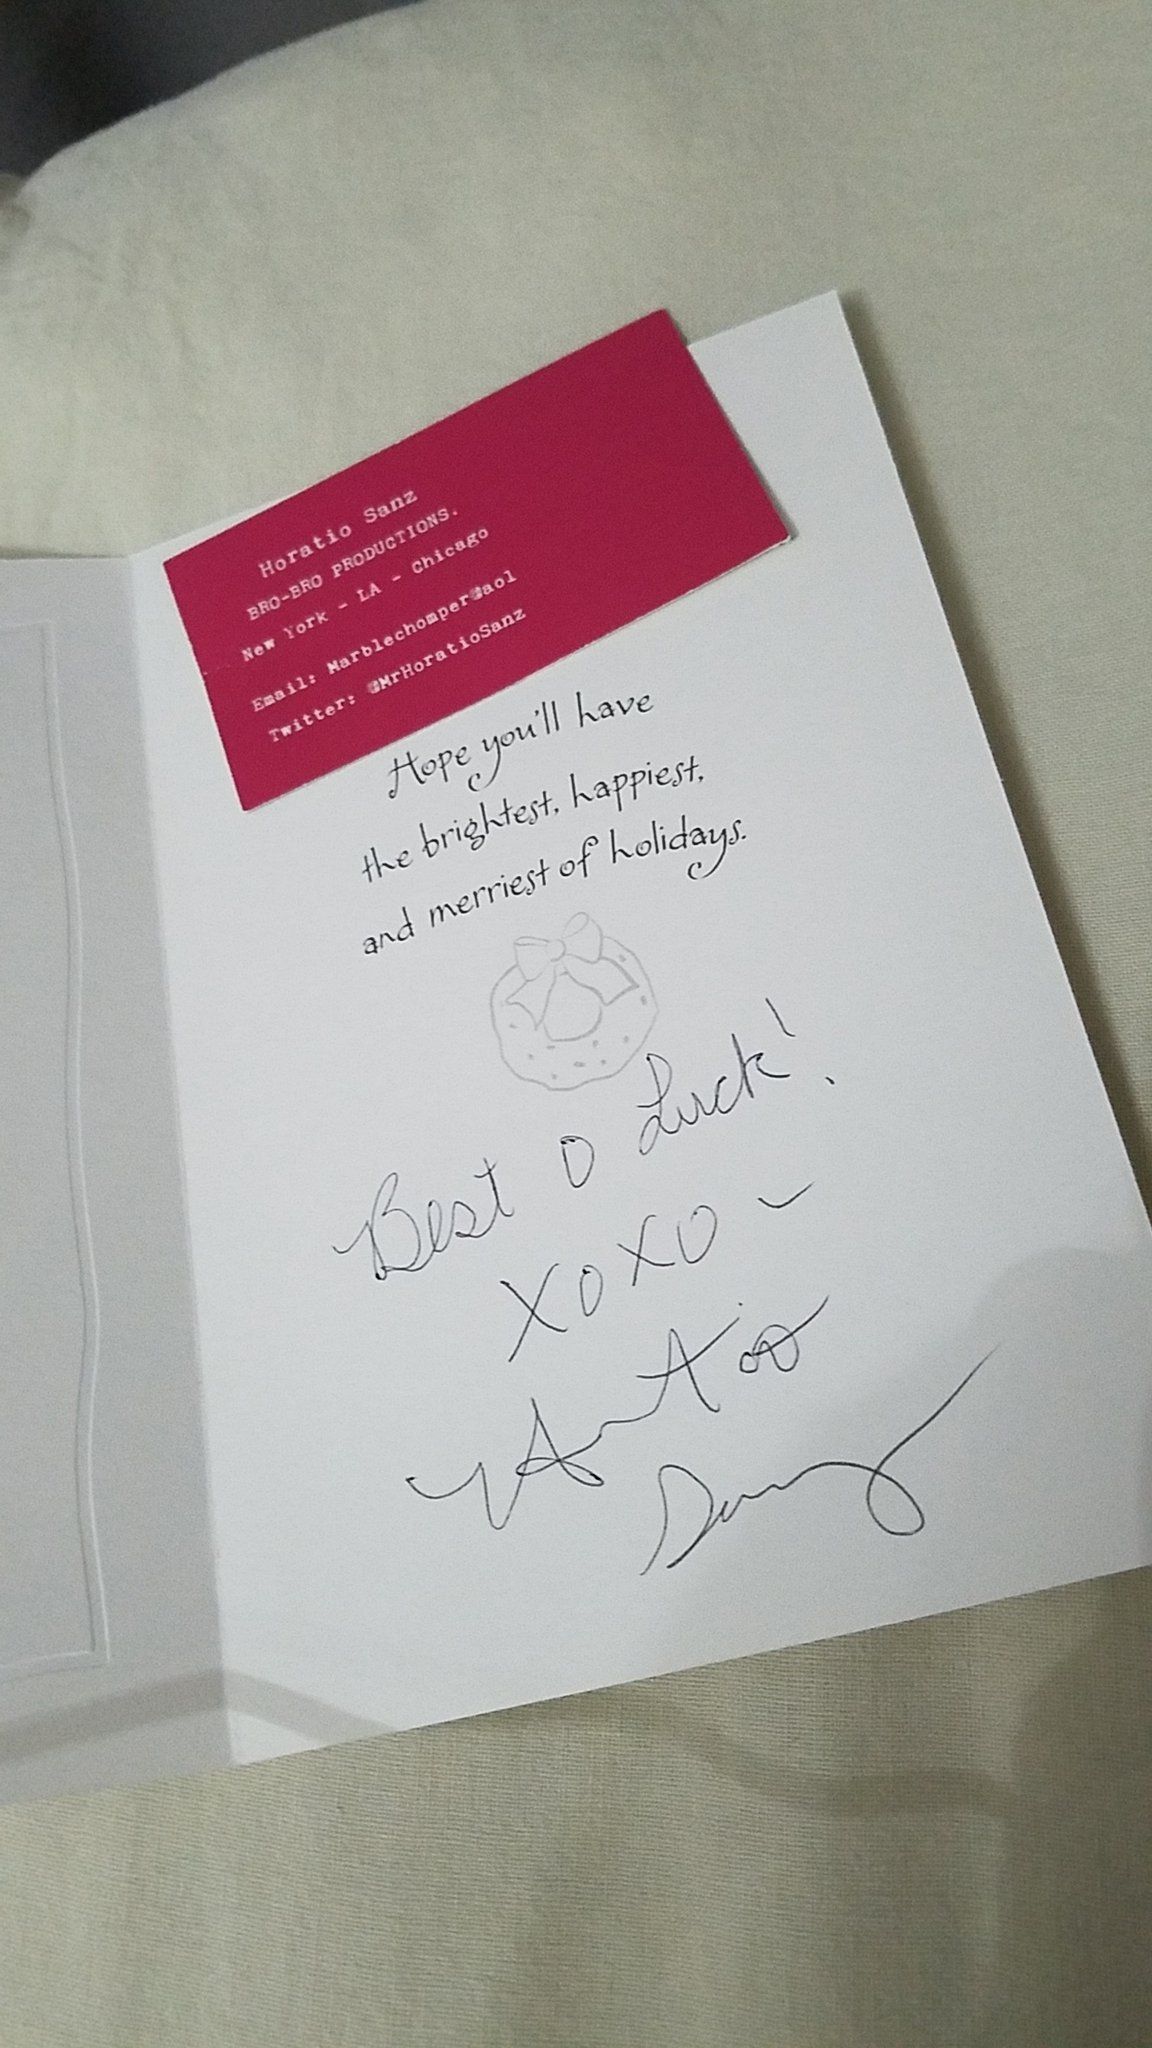 Horatio Sanz
BRO-BRO PRODUCTIONS.
New York - LA - Chicago
Email: Marblechomper@aol
Twitter: @MrHoratioSanz
Hope you'll have
the brightest, happiest,
and merriest of holidays.
Best O Luck!
XOXO -
Sanz